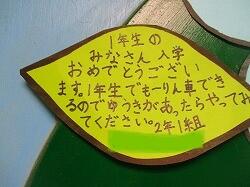 1年生の
みなさん入学
おめでとうござい
ます。1年生でもーりん車でき
るのでゆうきがあったらやってみ
てください。2年1組